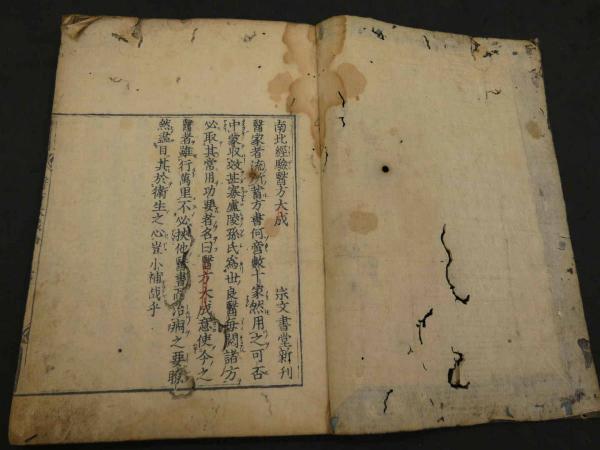 南北經驗醫方大成 宗文書堂新刊
醫家者流所蓄方書何啻數十家然用之可否
中蒙收效甚寡盧陵孫氏為世良醫每閱諸方
必取其常用功要者名曰醫方大成意使今之
醫者雖行萬里不必挾他醫書而治病之要瞭
然盡目其於衛生之心豈小補哉乎